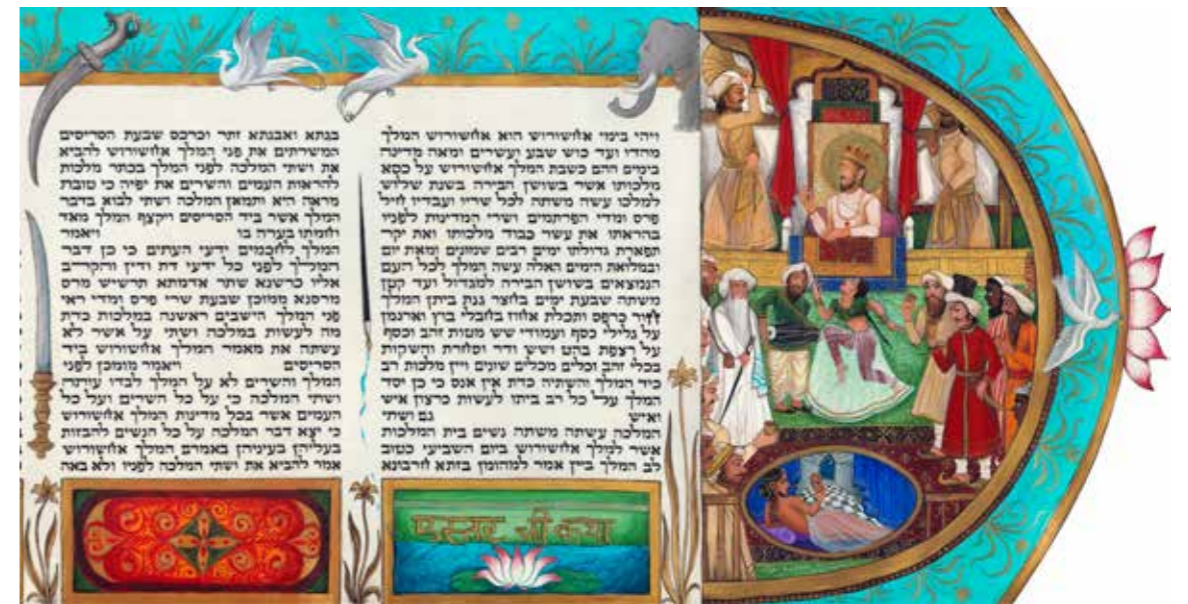 ויהי בימי אחשורוש הוא אחשורוש המלך
מהדו ועד כוש שבע ועשרים ומאה מדינה
בימים ההם כשבת המלך אחשורוש על כסא
מלכותו אשר בשושן הבירה בשנת שלוש
למלכו עשה משתה לכל שריו ועבדיו חיל
פרס ומדי הפרתמים ושרי המדינות לפניו
בהראתו את עשר כבוד מלכותו ואת יקר
תפארת גדולתו ימים רבים שמונים ומאת יום
ובמלואת הימים האלה עשה המלך לכל העם
הנמצאים בשושן הבירה למגדול ועד קטן
משתה שבעת ימים בחצר גנת ביתן המלך
חור כרפס ותכלת אחוז בחבלי בוץ וארגמן
על גלילי כסף ועמודי שש מטות זהב וכסף
על רצפת בהט ושש ודר וסחרת והשקות
בכלי זהב וכלים מכלים שונים ויין מלכות רב
כיד המלך והשתיה כדת אין אנס כי כן יסד
המלך על כל רב ביתו לעשות כרצון איש
ואיש גם ושתי
המלכה עשתה משתה נשים בית המלכות
אשר למלך אחשורוש ביום השביעי כטוב
לב המלך ביין אמר למהומן בזתא חרבונא
בגתא ואבגתא זתר וכרכס שבעת הסריסים
המשרתים את פני המלך אחשורוש להביא
את ושתי המלכה לפני המלך בכתר מלכות
להראות העמים והשרים את יפיה כי טובת
מראה היא ותמאן המלכה ושתי לבוא בדבר
המלך אשר ביד הסריסים ויקצף המלך מאד
וחמתו בערה בו ויאמר
המלך לחכמים ידעי העתים כי כן דבר
המלך לפני כל ידעי דת ודין והקרב
אליו כרשנא שתר אדמתא תרשיש מרס
מרסנא ממוכן שבעת שרי פרס ומדי ראי
פני המלך הישבים ראשנה במלכות כדת
מה לעשות במלכה ושתי על אשר לא
עשתה את מאמר המלך אחשורוש ביד
הסריסים ויאמר מומכן לפני
המלך והשרים לא על המלך לבדו עותה
ושתי המלכה כי על כל השרים ועל כל
העמים אשר בכל מדינות המלך אחשורוש
כי יצא דבר המלכה על כל הנשים להבזות
בעליהן בעיניהן באמרם המלך אחשורוש
אמר להביא את ושתי המלכה לפניו ולא באה
एस्तर की कथा